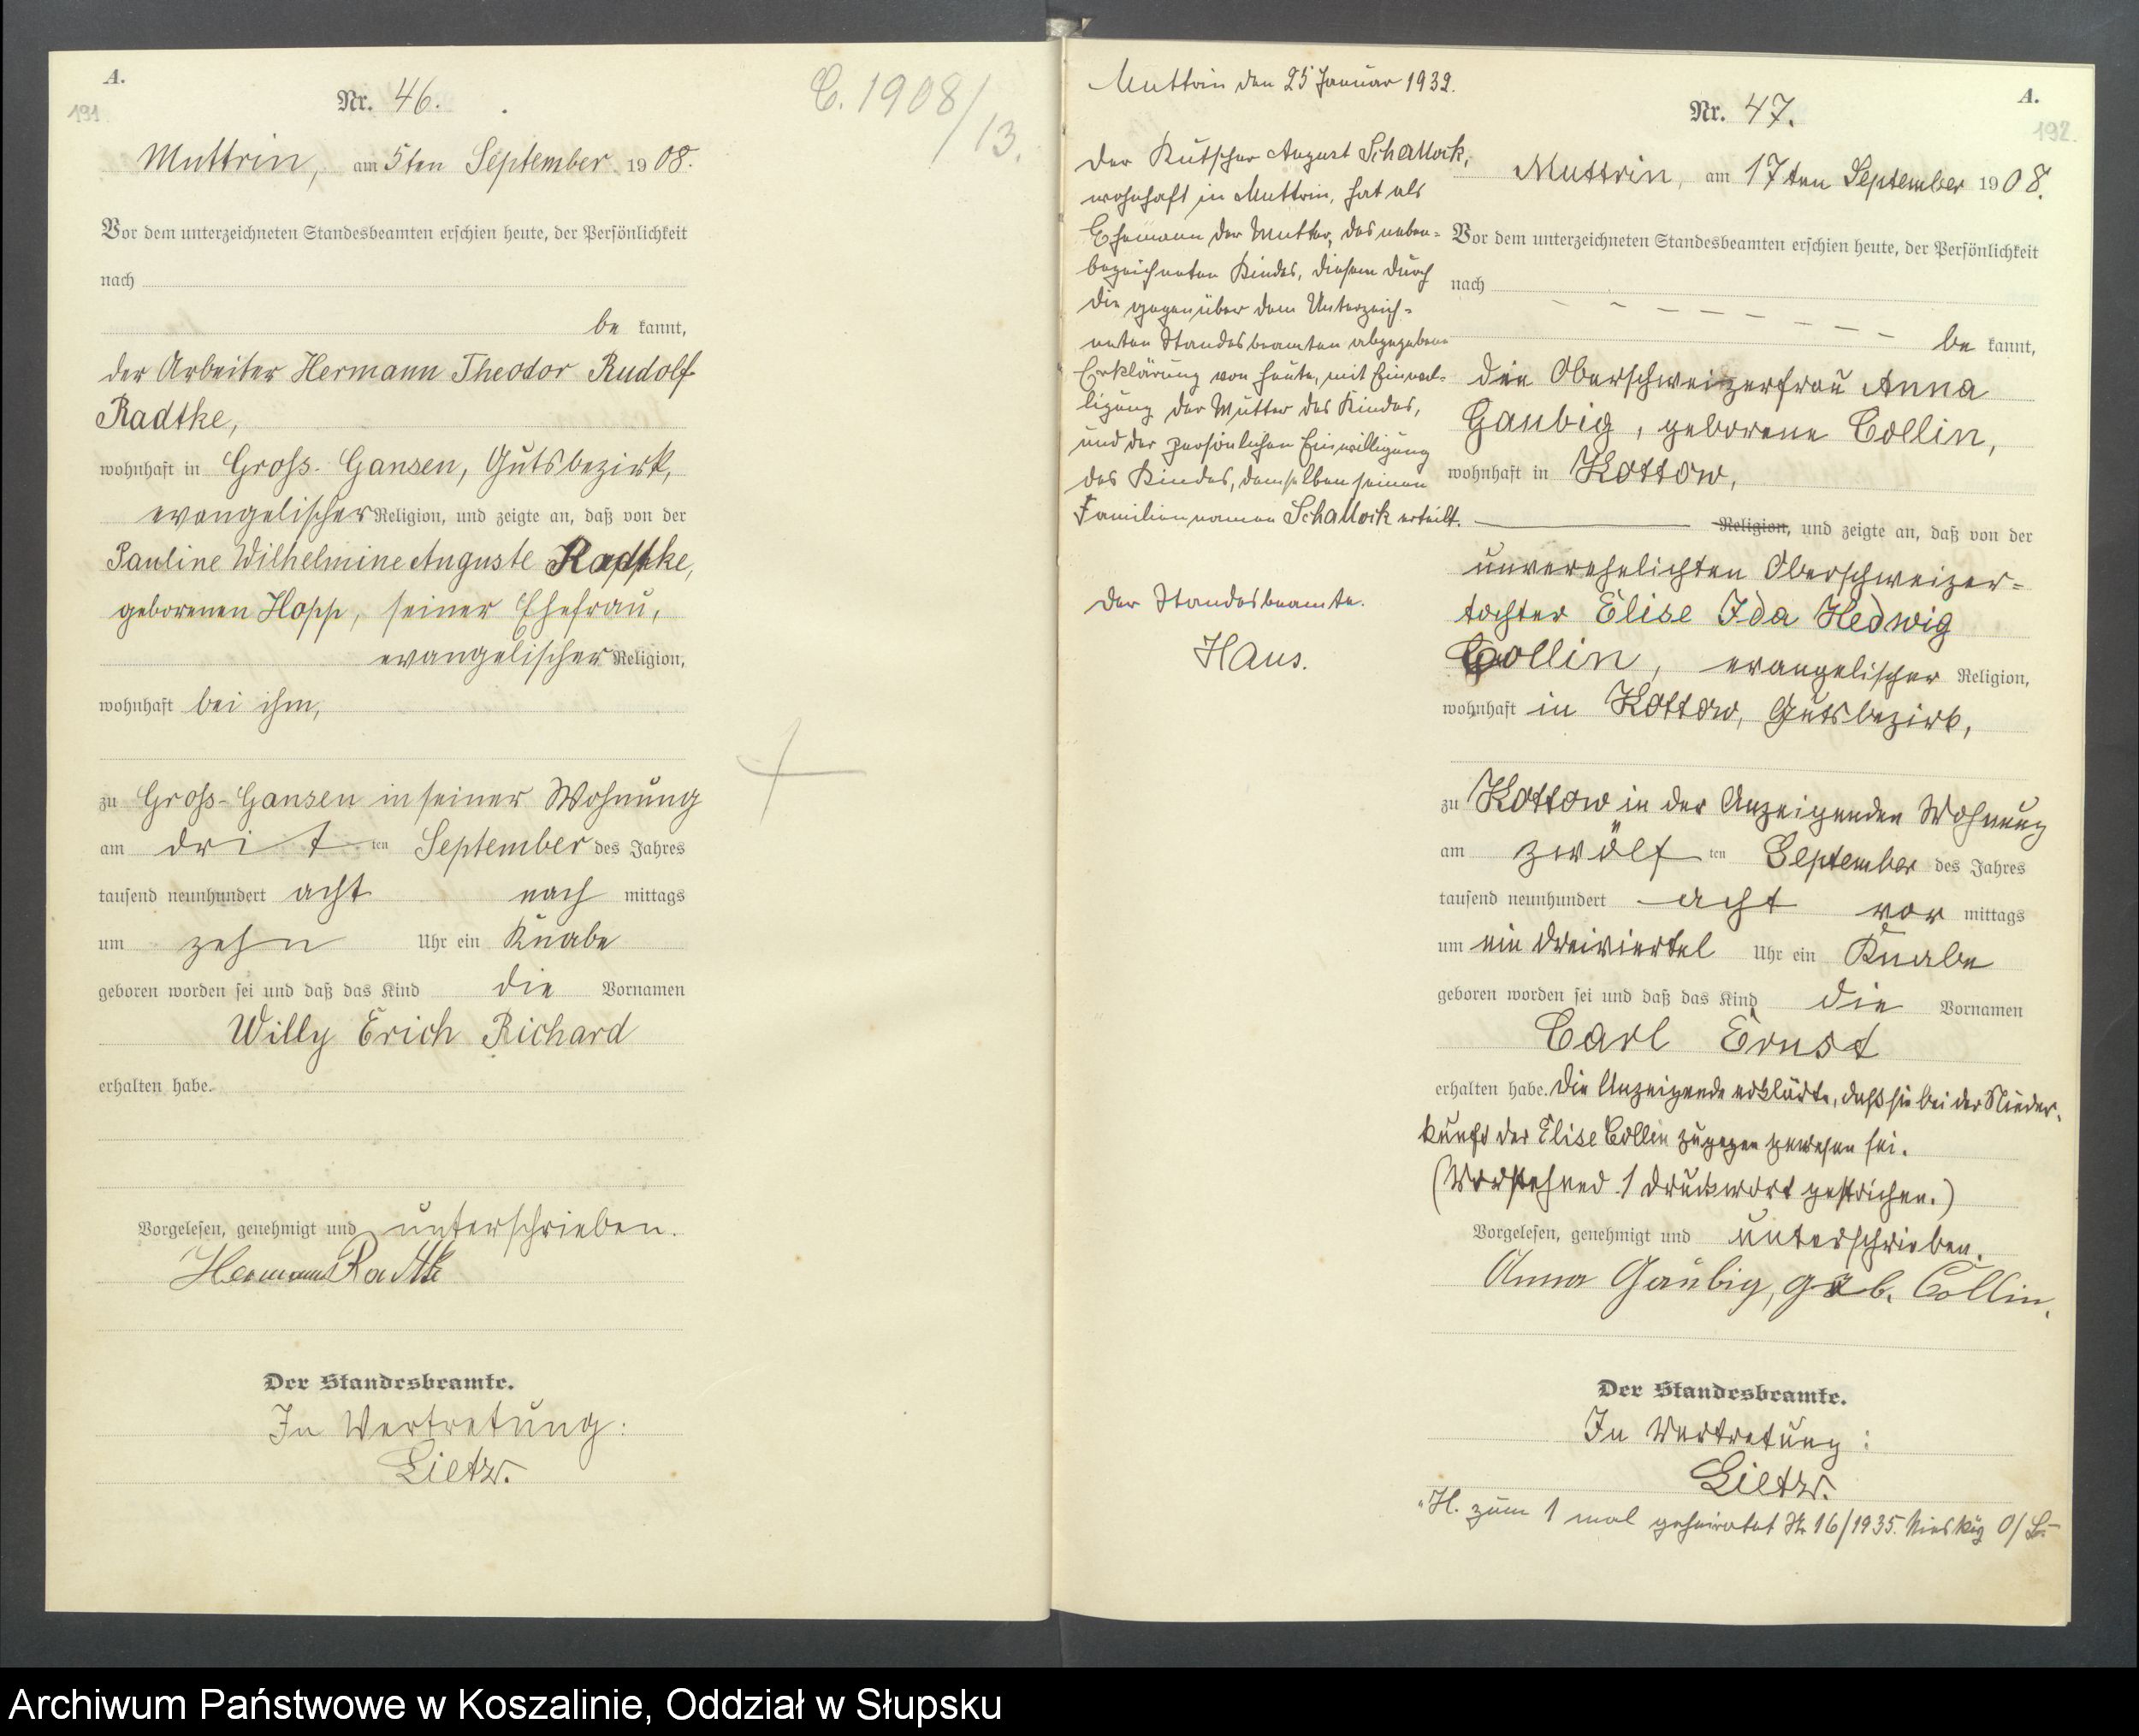 A.
191
Nr. 46.
C. 1908/13.
Muttrin, am 5ten September 1908.
Vor dem unterzeichneten Standesbeamten erschien heute, der Persönlichkeit
nach
be kannt,
der Arbeiter Hermann Theodor Rudolf
Radtke,
wohnhaft in Gross-Gansen, Gutsbezirk,
evangelischer Religion, und zeigte an, daß von der
Pauline Wilhelmine Auguste Radtke,
geborenen Hopp, seiner Ehefrau,
evangelischer Religion,
wohnhaft bei ihm,
zu Gross-Gansen in seiner Wohnung
am dritten September des Jahres
tausend neunhundert acht nach mittags
um zehn Uhr ein Knabe
geboren worden sei und daß das Kind die Vornamen
Willy Erich Richard
erhalten habe.
Vorgelesen, genehmigt und unterschrieben.
Hermann Radtke
Der Standesbeamte.
In Vertretung:
Lietz.
Muttrin den 25 Januar 1932.
Der Kutscher August Schallock,
wohnhaft in Muttrin, hat als
Ehemann der Mutter, des neben=
bezeichneten Kindes, diesem durch
die gegenüber dem Unterzeich=
neten Standesbeamten abgegebene
Erklärung von heute, mit Einwil=
ligung der Mutter des Kindes,
und der persönlichen Einwilligung
des Kindes, demselben seinen
Familiennamen Schallock erteilt.
Der Standesbeamte.
Haus.
A.
192.
Nr. 47.
Muttrin, am 17ten September 1908.
Vor dem unterzeichneten Standesbeamten erschien heute, der Persönlichkeit
nach
be kannt,
die Oberschweizerfrau Anna
Gaubig, geborene Collin,
wohnhaft in Kottow,
Religion, und zeigte an, daß von der
unverehelichten Oberschweizer=
tochter Elise Ida Hedwig
Collin, evangelischer Religion,
wohnhaft in Kottow, Gutsbezirk,
zu Kottow in der Anzeigenden Wohnung
am zwölften September des Jahres
tausend neunhundert acht vor mittags
um ein dreiviertel Uhr ein Knabe
geboren worden sei und daß das Kind die Vornamen
Carl Ernst
erhalten habe. Die Anzeigende erklärte, daß sie bei der Nieder-
kunft der Elise Collin zugegen gewesen sei.
(Vorstehend 1 Druckwort gestrichen.)
Vorgelesen, genehmigt und unterschrieben.
Anna Gaubig, geb. Collin.
Der Standesbeamte.
In Vertretung:
Lietz.
H. zum 1 mal geheiratet Nr 16/1935.
Archiwum Państwowe w Koszalinie, Oddział w Słupsku